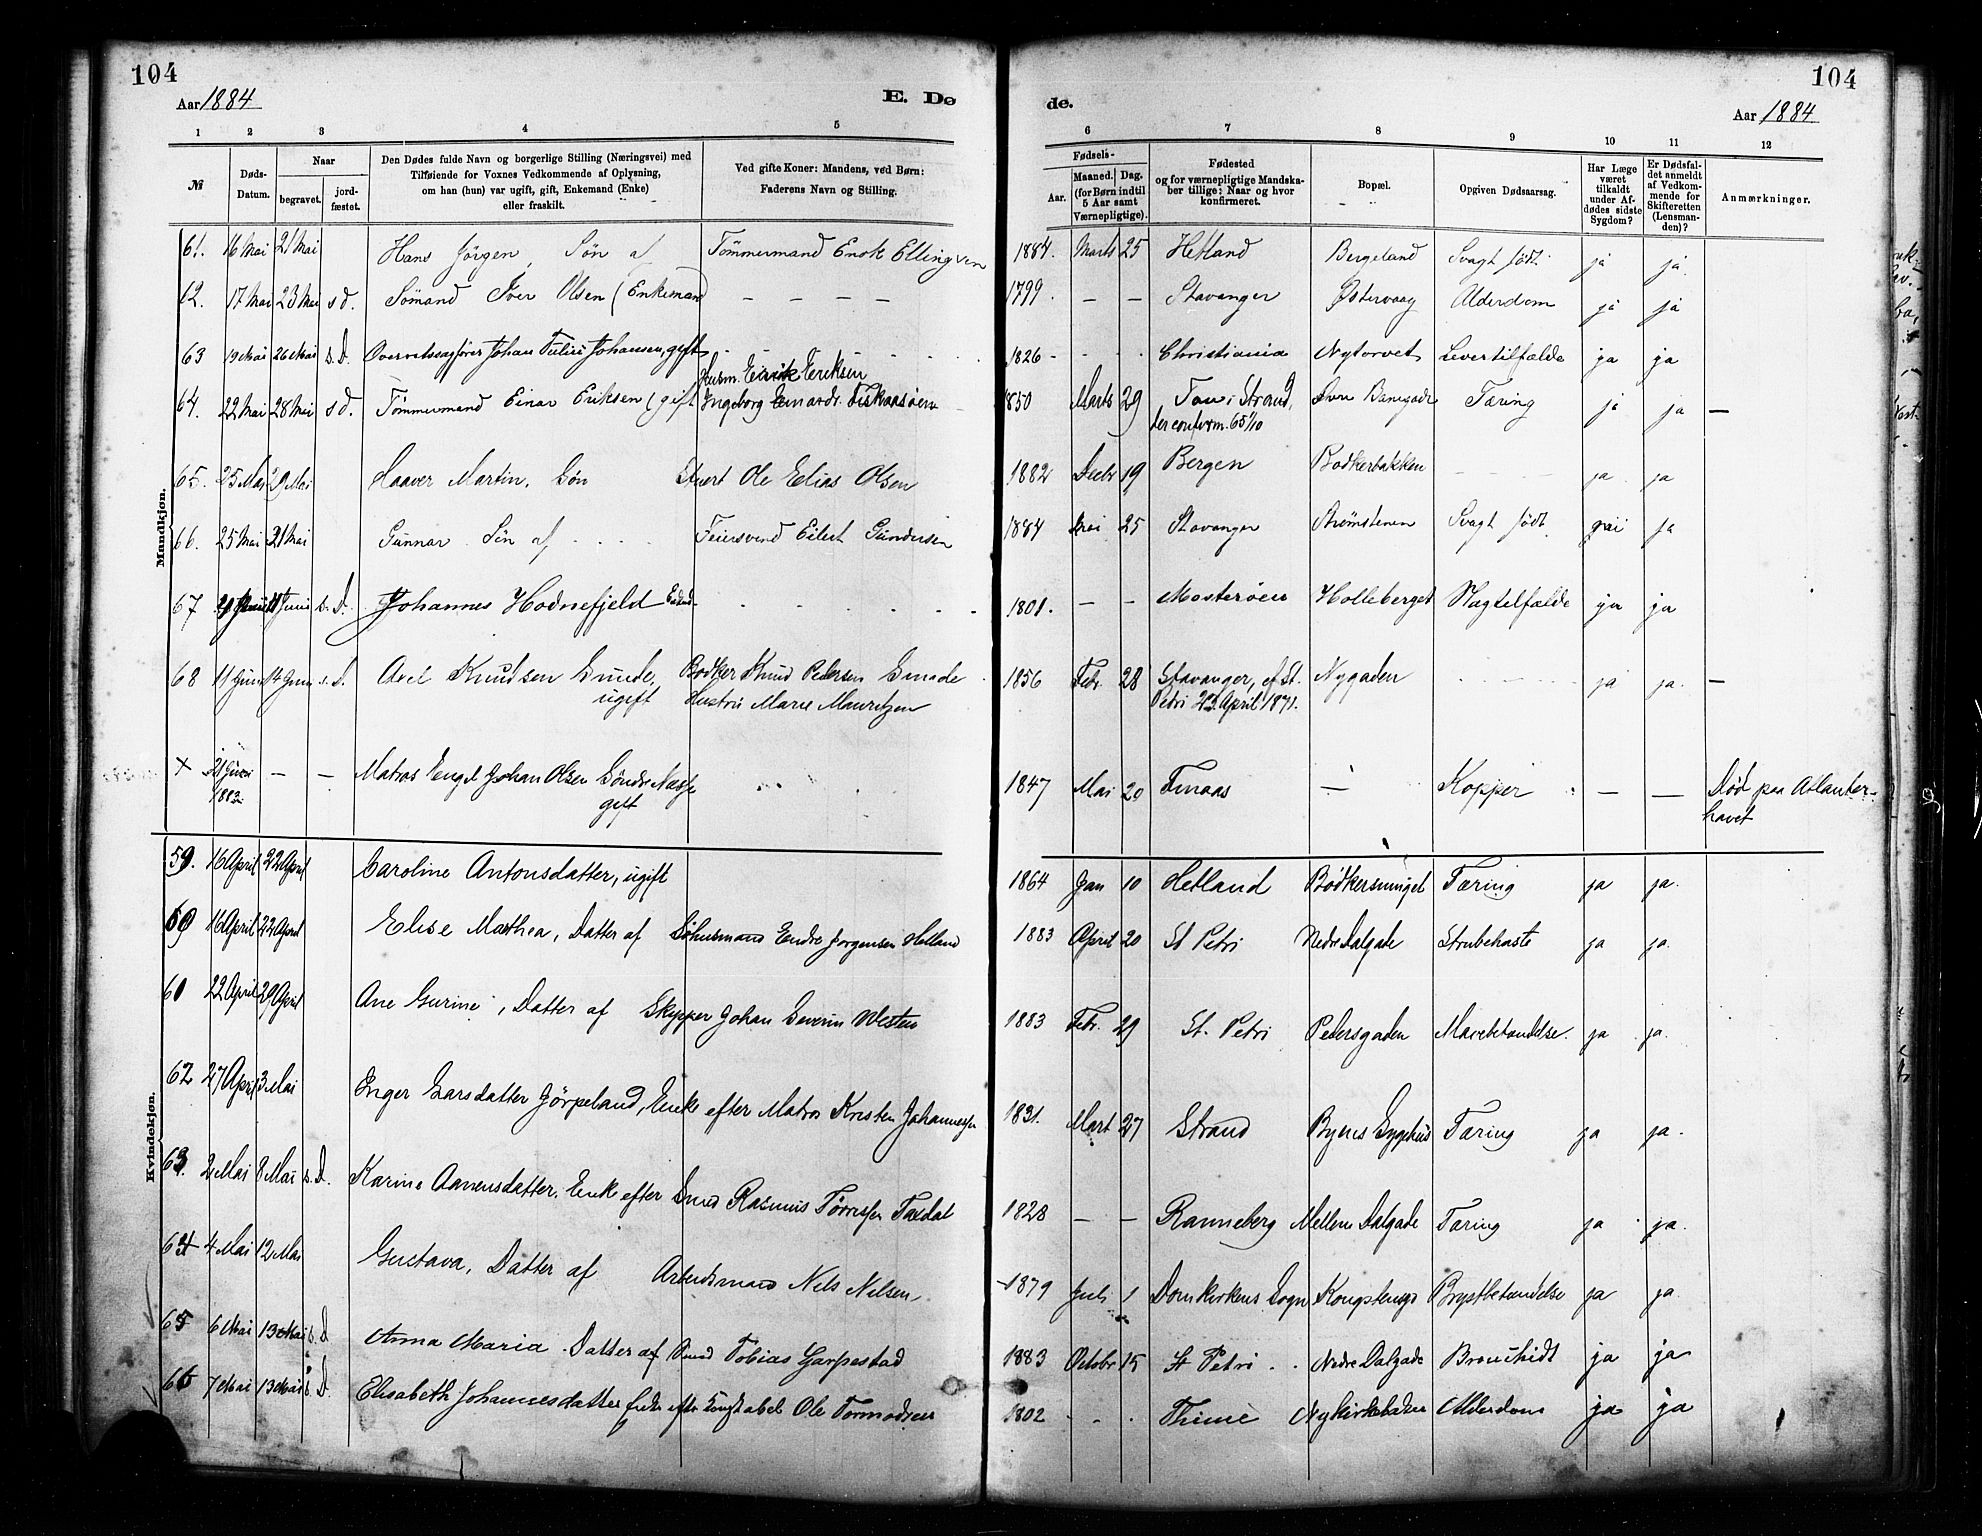 104
104
Aar 1884
E. Dø
de.
Aar 1884
1 2 3 4 5
6 7 8 9 10 11 12
№
Døds-Datum.
Naar
begravet.
jord-fæstet.
Den Dødes fulde Navn og borgerlige Stilling (Næringsvei) med
Tilføiende for Voxnes Vedkommende af Oplysning,
om han (hun) var ugift, gift, Enkemand (Enke)
eller fraskilt.
Ved gifte Koner: Mandens, ved Børn:
Faderens Navn og Stilling.
Fødsels-
Aar.
Maaned. Dag.
(for Børn indtil
5 Aar samt
Værnepligtige).
Fødested
og for værnepligtige Mandska-
ber tillige: Naar og hvor
konfirmeret.
Bopæl.
Opgiven Dødsaarsag.
Har Læge
været
tilkaldt
under Af-
dødes sidste
Sygdom?
Er Dødsfal-
det anmeldt
af Vedkom-
mende for
Skifteretten
(Lensman-
den)?
Anmærkninger.
Mandkjøn.
61. 16 Mai 21 Mai Hans Jörgen, Sön af Tömmermand Enok Ellingsen 1884. Marts 25 Hetland Bergeland Svagt födt. ja ja.
62. 17 Mai 23 Mai s d. Sömand Iver Olsen (Enkemand — — — — 1799. — — Stavanger Østervaag Alderdom ja ja
63 19 Mai 26 Mai s. D. Overretssagförer Johan Johansen, gift 1826 - - - Christiania Nytorvet Levertilfælde ja ja
Husm. Eirik Eriksen
64. 22 Mai 28 Mai s d. Tömmermand Einar Eriksen (gift Ingeborg 1850 Marts 29 Tou i Strand, Övre Banegade Tæring ja ja —
der confirm. 65 1/10
65. 25 Mai 29 Mai Haaver Martin. Sön Stuert Ole Elias Olsen 1882 Decbr 19 Bergen Bødkerbakken — — — ja ja
66. 25 Mai 31 Mai Gunnar Sön af Feiersvend Eilert Gundersen 1884 Mai 25 Stavanger Strømstenen Svagt födt. nei ja
67 Juni s. D. Johannes Hodnefjeld 1801. — — Mosterøen Holleberget Slagtilfælde ja ja
68 11 Juni 14 Juni s. D. Axel Knudsen Smede, Bødker Knud Pedersen Smede 1856 Febr. 28 Stavanger, cf St. Nygaden ja ja. —
ugift Hustru Marie Mauritzen Petri 23 April 1871.
+ 21 Juni — — Matros Engel Johan Olsen Söndre Næsse 1847 Mai 20 Finaas — Kopper — — Död paa Atlanter-
1883. gift havet
Kvindekjøn.
59. 16 April 22 April Caroline Antonsdatter, ugift 1864 Jan 10 Hetland Bödkersmuget Tæring ja ja.
16 April 22 April Elise Marthea, Datter af Söhusmand Endre Jørgensen Helland 1883 April 20 St Petri Nedre Dalgade Strubehoste ja ja.
61 22 April 29 April Ane Gurine, Datter af Skipper Johan Severin Westen 1883 Febr. 29 St. Petri Pedersgaden Mavebetændelse. ja ja.
62 27 April 3 Mai Inger Larsdatter Jörpeland, Enke efter Matros Kristen Johannessen 1831. Mart 27 Strand Byens Sygehus Tæring ja ja.
63. 2 Mai 8 Mai s. D. Karine Aanensdatter, Enke efter Smed Rasmus Törresen 1828 — — Ranneberg Mellem Dalgade Tæring ja ja.
64 4 Mai 12 Mai Gustava, Datter af Arbeidsmand Nils Nilsen 1879 Juli 1 Domkirkens Sogn Kongstensgd Brystbetændelse ja ja.
65 6 Mai 13 Mai s. D Anna Maria. Datter af Smed Tobias Garpestad 1883 Octobr 15 St Petri Nedre Dalgade Bronchidt ja ja
66 7 Mai 13 Mai s. D. Elisabeth Johannesdatter Enke efter Ole Tormodsen 1802 - - Thime Nykirkebakken Alderdom ja ja